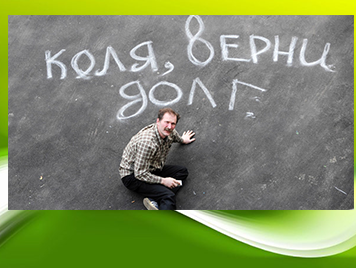 КОЛЯ, ВЕРНИ
ДОЛГ.